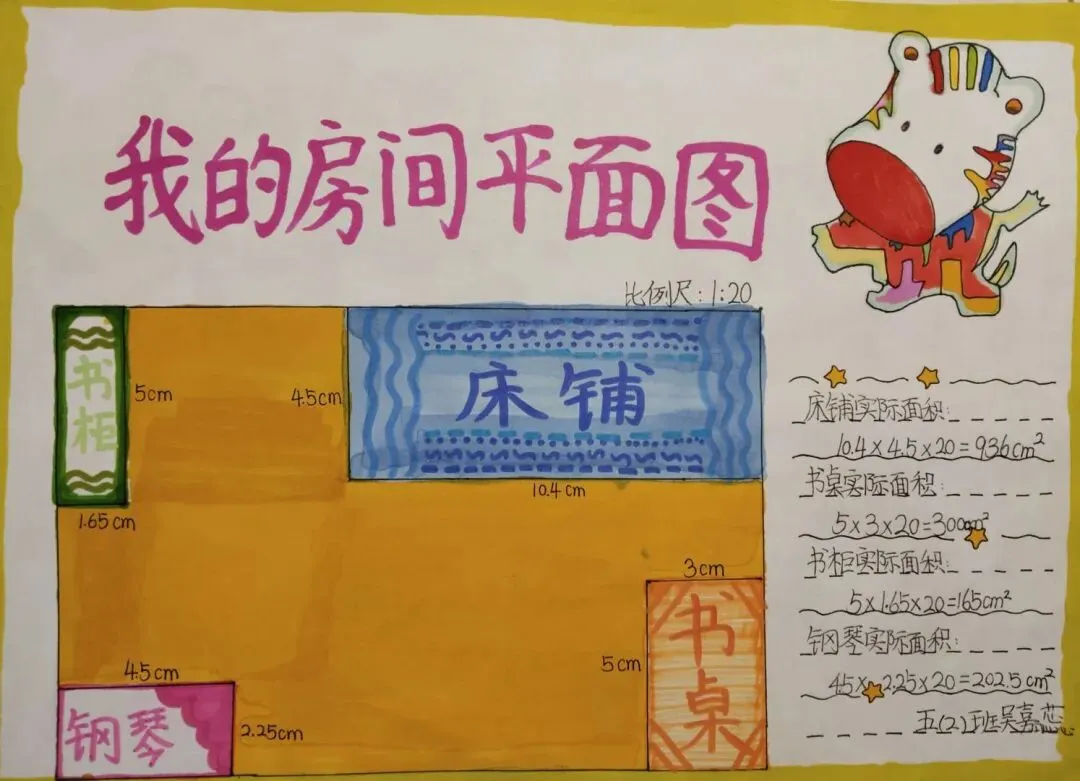 我的房间平面图
比例尺:1:20
书柜
5cm
1.65cm
4.5cm
床铺
10.4cm
3cm
5cm
书桌
4.5cm
钢琴
2.25cm
床铺实际面积:
10.4×4.5×20=936cm²
书桌实际面积:
5×3×20=300cm²
书柜实际面积:
5×1.65×20=165cm²
钢琴实际面积:
4.5×2.25×20=202.5cm²
五(2)班吴嘉蕊